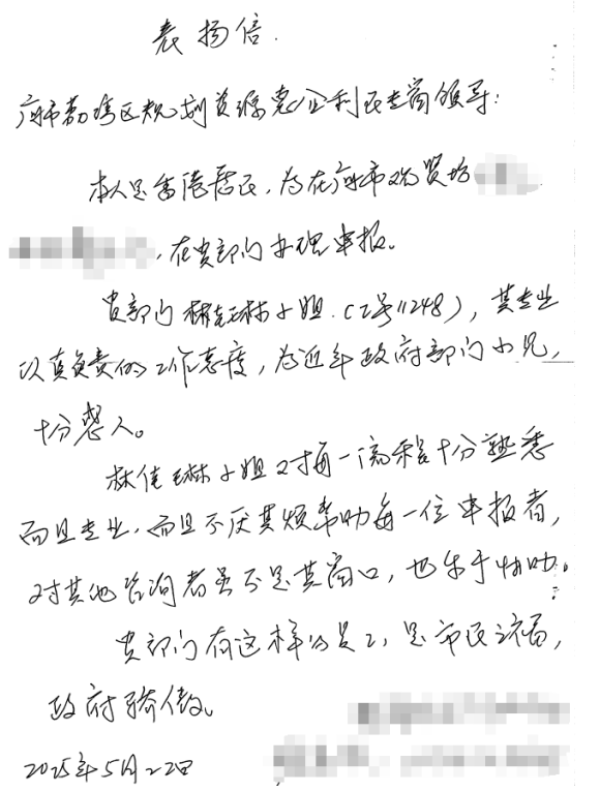 表扬信.
广州市荔湾区规划资源惠企利民专窗领导:
本人是香港居民，为在广州市观贤坊
，在贵部门办理申报。
贵部门 林佳琳小姐.(工号11248)，其专业
认真负责的工作态度，为近年政府部门少见，
十分感人。
林佳琳小姐对每一流程十分熟悉
而且专业，而且不厌其烦帮助每一位申报者，
对其他咨询者虽不是其窗口，也乐于协助。
贵部门有这样的员工，是市民之福，
政府骄傲。
2025年5月22日